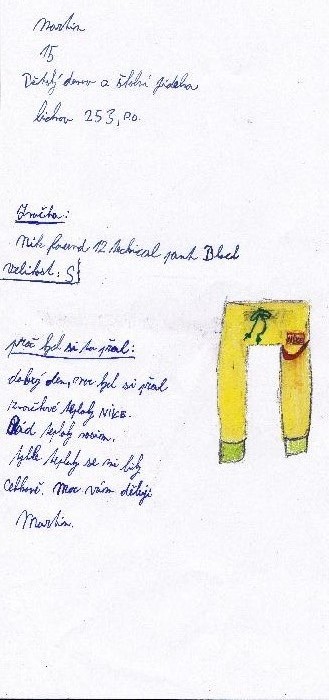 Martin
15
Dětský domov a školní jídelna
Lichnov 253, p.o.
Značka:
Nik found 12 technical pant Black
velikost: S
proč byl si to přál:
dobrý den, moc byl si přál
značkové tepláky NIKE.
Rád tepláky nosím.
tyhle tepláky se mi líby
celkově. Moc vám děkuji
Martin.
NIKE